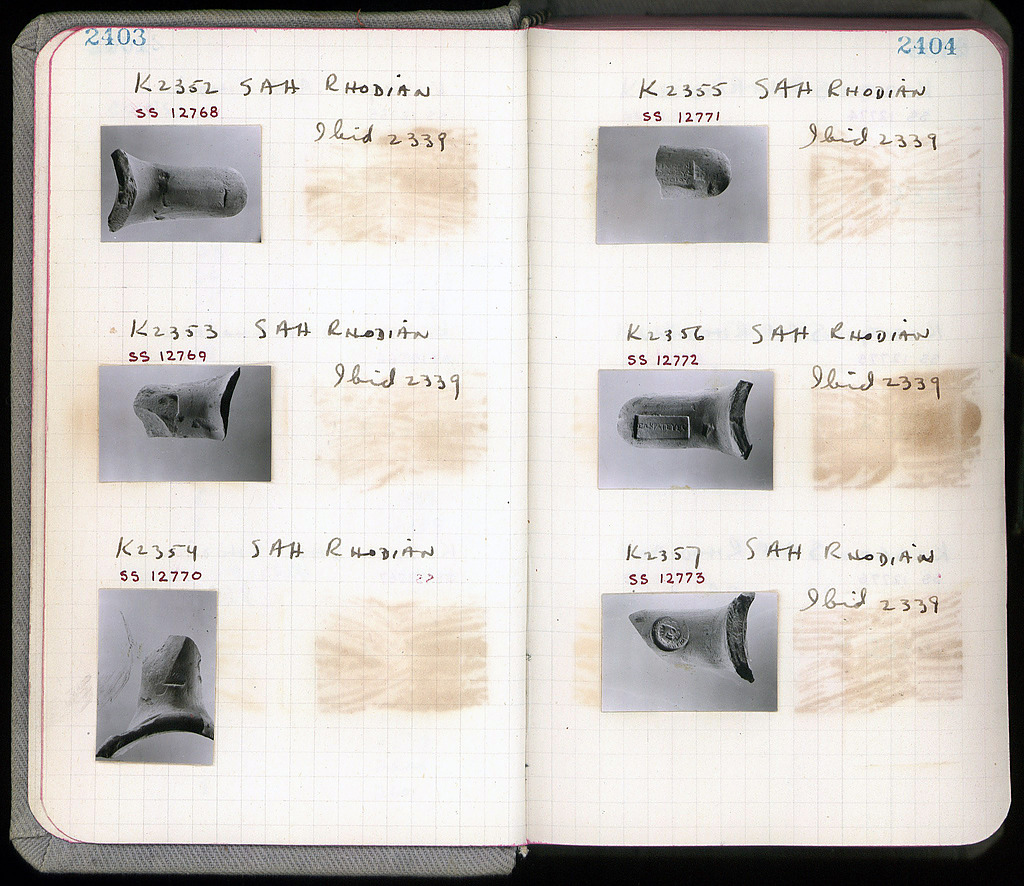 2403
K2352 SAH RHODIAN
SS 12768
Ibid 2339
K2353 SAH RHODIAN
SS 12769
Ibid 2339
K2354 SAH RHODIAN
SS 12770
2404
K2355 SAH RHODIAN
SS 12771
Ibid 2339
K2356 SAH RHODIAN
SS 12772
Ibid 2339
K2357 SAH RHODIAN
SS 12773
Ibid 2339